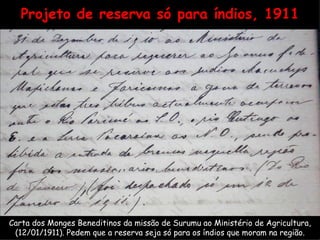 Projeto de reserva só para índios, 1911
31 de Dezembro de 1910 ao Ministerio de
Agricultura para requerer ao Governo fede-
ral que se reserve aos indios Macuchys
Wapichanas e Jaricunas a zona de terrenos
que estas tres tribus actualmente occupam
entre o Rio Parimé ao S.O., o rio Cutingo ao
E. e a Serra Pacaraima ao N.O., sendo pro-
hibida a entrada de brancos naquella região
fora dos missionarios benedictinos. (Do Rio
de Janeiro), (foi despachado no 12 de
Janeiro de 1911).
Carta dos Monges Beneditinos da missão de Surumu ao Ministério de Agricultura,
(12/01/1911). Pedem que a reserva seja só para os índios que moram na região.